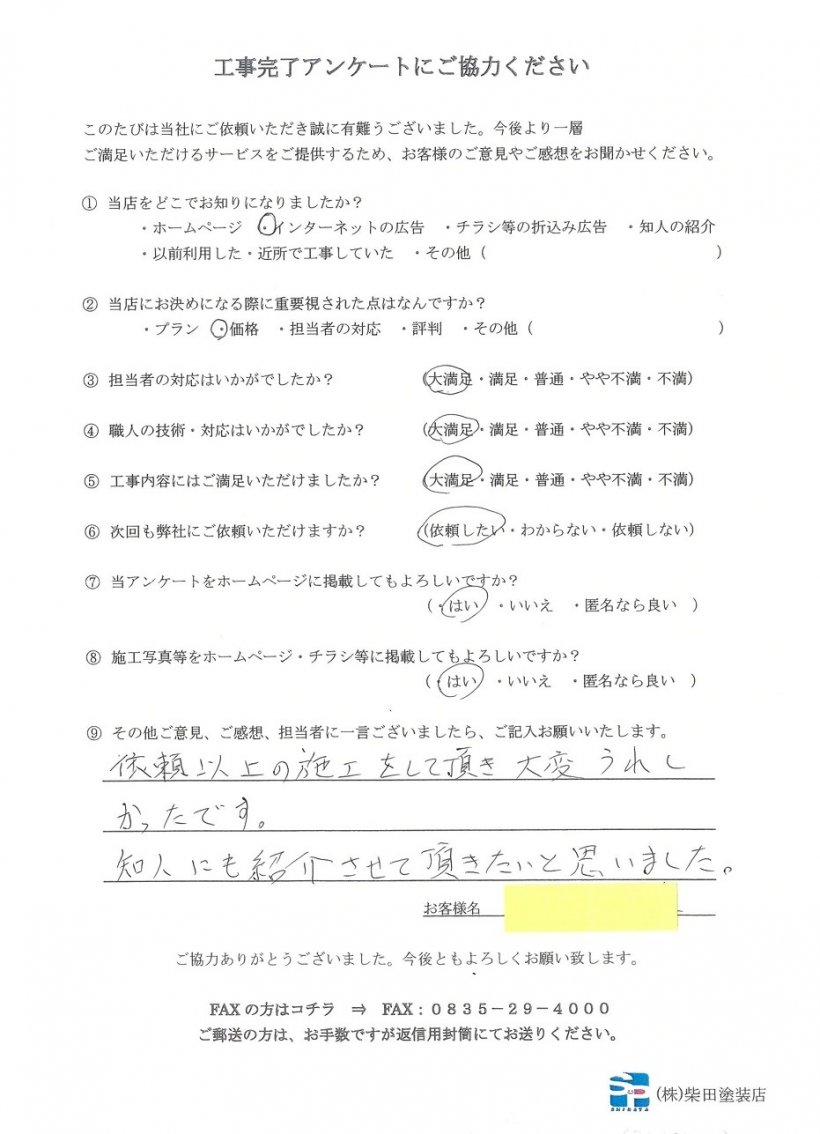 工事完了アンケートにご協力ください
このたびは当社にご依頼いただき誠に有難うございました。今後より一層
ご満足いただけるサービスをご提供するため、お客様のご意見やご感想をお聞かせください。
① 当店をどこでお知りになりましたか？
・ホームページ ・インターネットの広告 ・チラシ等の折込み広告 ・知人の紹介
・以前利用した・近所で工事していた ・その他（ ）
② 当店にお決めになる際に重要視された点はなんですか？
・プラン ・価格 ・担当者の対応 ・評判 ・その他（ ）
③ 担当者の対応はいかがでしたか？ （大満足・満足・普通・やや不満・不満）
④ 職人の技術・対応はいかがでしたか？ （大満足・満足・普通・やや不満・不満）
⑤ 工事内容にはご満足いただけましたか？ （大満足・満足・普通・やや不満・不満）
⑥ 次回も弊社にご依頼いただけますか？ （依頼したい・わからない・依頼しない）
⑦ 当アンケートをホームページに掲載してもよろしいですか？
（・はい ・いいえ ・匿名なら良い ）
⑧ 施工写真等をホームページ・チラシ等に掲載してもよろしいですか？
（・はい ・いいえ ・匿名なら良い ）
⑨ その他ご意見、ご感想、担当者に一言ございましたら、ご記入お願いいたします。
依頼以上の施工をして頂き大変うれし
かったです。
知人にも紹介させて頂きたいと思いました。
お客様名
ご協力ありがとうございました。今後ともよろしくお願い致します。
FAXの方はコチラ ⇒ FAX：０８３５－２９－４０００
ご郵送の方は、お手数ですが返信用封筒にてお送りください。
SHIBATA
(株)柴田塗装店